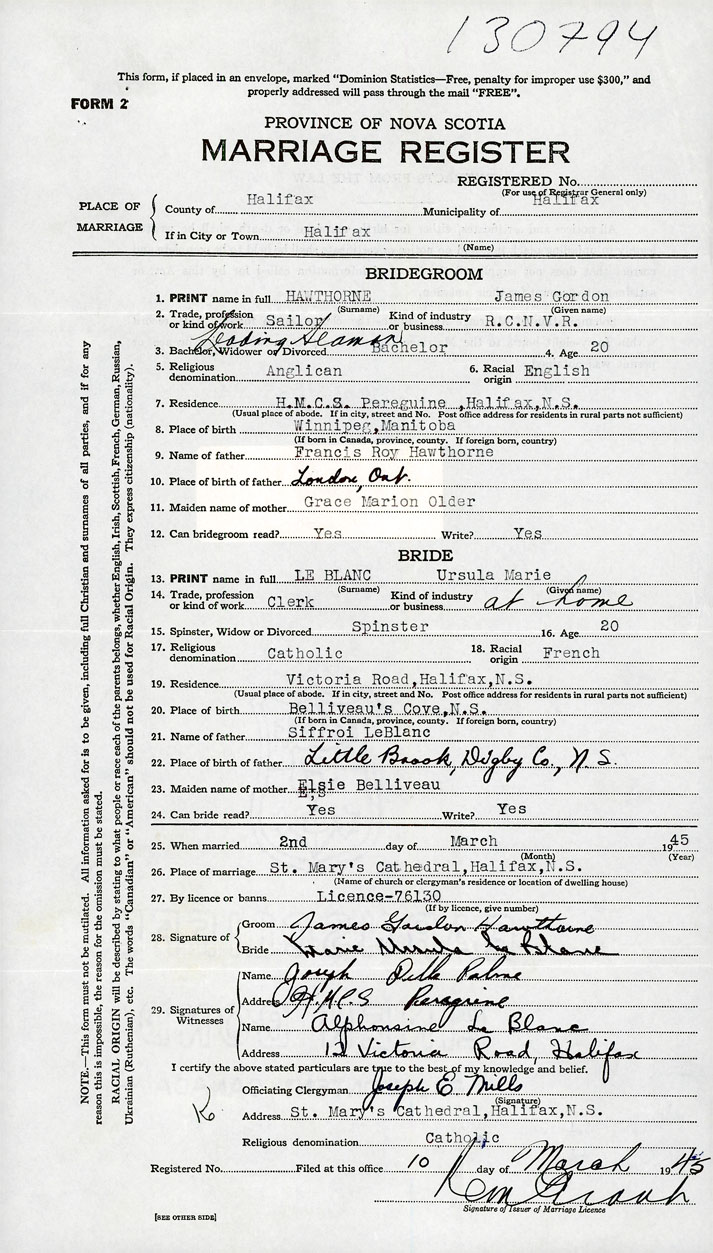 130794
This form, if placed in an envelope, marked "Dominion Statistics—Free, penalty for improper use $300," and
properly addressed will pass through the mail "FREE".
FORM 2
PROVINCE OF NOVA SCOTIA
MARRIAGE REGISTER
REGISTERED No.
(For use of Registrar General only)
PLACE OF MARRIAGE
County of Halifax Municipality of Halifax
If in City or Town Halifax
(Name)
BRIDEGROOM
1. PRINT name in full HAWTHORNE James Gordon
(Surname) (Given name)
2. Trade, profession or kind of work Sailor Leading Seaman Kind of industry or business R.C.N.V.R.
3. Bachelor, Widower or Divorced Bachelor 4. Age 20
5. Religious denomination Anglican 6. Racial origin English
7. Residence H.M.C.S. Pereguine ,Halifax,N.S.
(Usual place of abode. If in city, street and No. Post office address for residents in rural parts not sufficient)
8. Place of birth Winnipeg,Manitoba
(If born in Canada, province, county. If foreign born, country)
9. Name of father Francis Roy Hawthorne
10. Place of birth of father London, Ont.
11. Maiden name of mother Grace Marion Older
12. Can bridegroom read? Yes Write? Yes
BRIDE
13. PRINT name in full LE BLANC Ursula Marie
(Surname) (Given name)
14. Trade, profession or kind of work Clerk Kind of industry or business at home
15. Spinster, Widow or Divorced Spinster 16. Age 20
17. Religious denomination Catholic 18. Racial origin French
19. Residence Victoria Road,Halifax,N.S.
(Usual place of abode. If in city, street and No. Post office address for residents in rural parts not sufficient)
20. Place of birth Belliveau's Cove,N.S.
(If born in Canada, province, county. If foreign born, country)
21. Name of father Siffroi LeBlanc
22. Place of birth of father Little Brook, Digby Co., N.S.
23. Maiden name of mother Elsie Belliveau
24. Can bride read? Yes Write? Yes
25. When married 2nd day of March 1945
(Month) (Year)
26. Place of marriage St. Mary's Cathedral,Halifax,N.S.
(Name of church or clergyman's residence or location of dwelling house)
27. By licence or banns Licence-76130
(If by licence, give number)
28. Signature of
Groom James Gordon Hawthorne
Bride Marie Ursula Le Blanc
29. Signatures of Witnesses
Name Joseph Palme
Address H.M.C.S Peregrine
Name Alphonsine Le Blanc
Address 12 Victoria Road, Halifax
I certify the above stated particulars are true to the best of my knowledge and belief.
Officiating Clergyman Joseph E Mills
(Signature)
Address St. Mary's Cathedral,Halifax,N.S.
Religious denomination Catholic
Registered No. Filed at this office 10 day of March 1945
Signature of Issuer of Marriage Licence
[SEE OTHER SIDE]
NOTE.—This form must not be mutilated. All information asked for is to be given, including full Christian and surnames of all parties, and if for any
reason this is impossible, the reason for the omission must be stated.
RACIAL ORIGIN will be described by stating to what people or race each of the parents belongs, whether English, Irish, Scottish, French, German, Russian,
Ukrainian (Ruthenian), etc. The words "Canadian" or "American" should not be used for Racial Origin. They express citizenship (nationality).